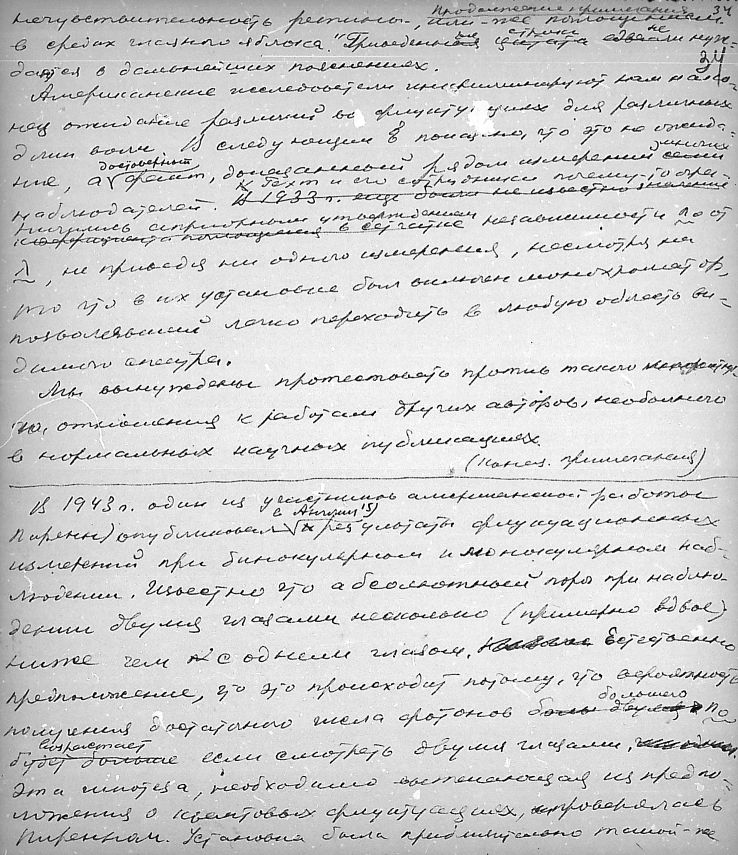 Продолжение примечания 34
нечувствительность ретины, или-же поглощением
в средах глазного яблока." Приведенные строки едва ли не нуж-
даются в дальнейших пояснениях. 34
Американские исследователи инкриминируют нам нако-
нец ожидание различий во флуктуациях для различных
длин волн. В следующем § показано, что это не ожида-
ние, а достоверный факт, доказанный рядом измерений многих
наблюдателей. Гехт и его сотрудники почему-то огра-
ничились априорным утверждением независимости n₀ от
λ, не приведя ни одного измерения, несмотря на
то что в их установке был включен монохроматор,
позволявший легко переходить в любую область ви-
димого спектра.
Мы вынуждены протестовать против такого
отношения к работам других авторов, необычного
в нормальных научных публикациях.
(Конец примечания)
В 1943 г. один из участников американской работы
Пиренн) опубликовал в Англии 15) результаты флуктуационных
измерений при бинокулярном и монокулярном наб-
людении. Известно что абсолютный порог при наблю-
дении двумя глазами несколько (примерно вдвое)
ниже чем с одним глазом. Естественно
предположение, что это происходит потому, что вероятность
получения достаточного числа фотонов большего n₀
возрастает если смотреть двумя глазами.
Эта гипотеза, необходимо вытекающая из предпо-
ложения о квантовых флуктуациях, проверялась
Пиренном. Установка была приблизительно такой-же